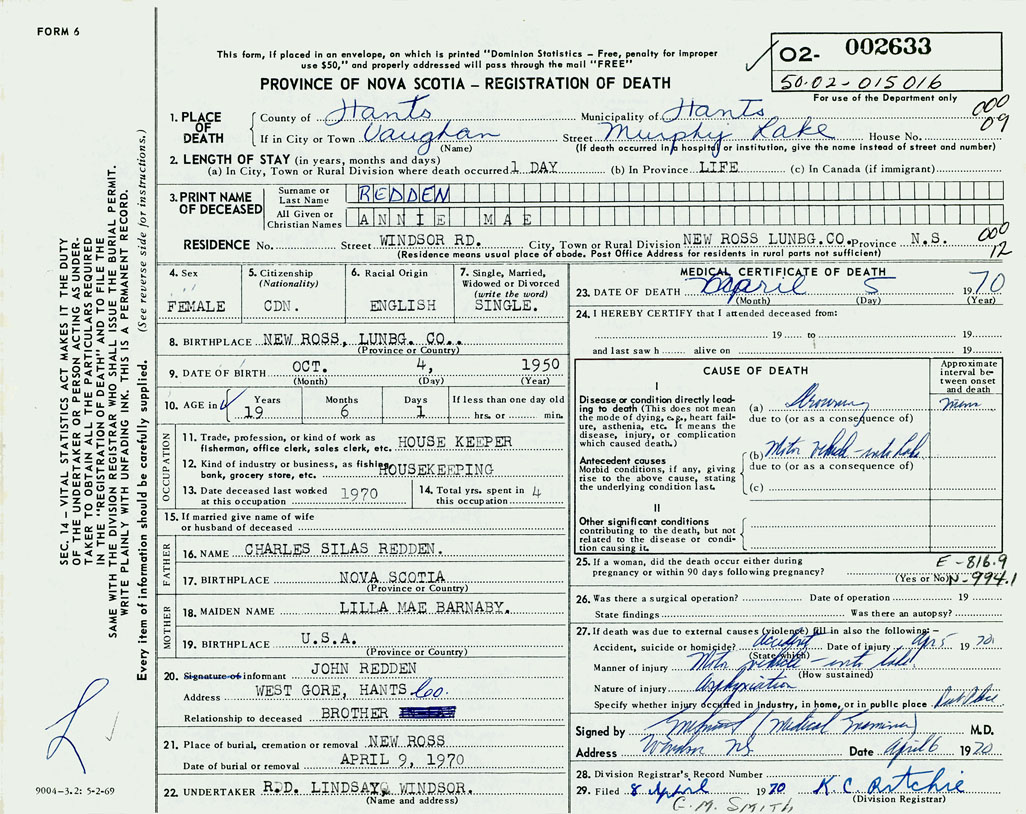 FORM 6
This form, if placed in an envelope, on which is printed "Dominion Statistics – Free, penalty for improper
use $50," and properly addressed will pass through the mail "FREE"
PROVINCE OF NOVA SCOTIA – REGISTRATION OF DEATH
02- 002633
50.02-015016
For use of the Department only
000
09
1. PLACE OF DEATH
County of Hants Municipality of Hants
If in City or Town Vaughan Street Murphy Lake House No.
(Name) (If death occurred in a hospital or institution, give the name instead of street and number)
2. LENGTH OF STAY (in years, months and days)
(a) In City, Town or Rural Division where death occurred 1 DAY (b) In Province LIFE (c) In Canada (if immigrant)
3. PRINT NAME OF DECEASED
Surname or Last Name REDDEN
All Given or Christian Names ANNIE MAE
RESIDENCE No. Street WINDSOR RD. City, Town or Rural Division NEW ROSS LUNBG.CO. Province N.S.
(Residence means usual place of abode. Post Office Address for residents in rural parts not sufficient)
000
12
4. Sex
FEMALE
5. Citizenship
(Nationality)
CDN.
6. Racial Origin
ENGLISH
7. Single, Married,
Widowed or Divorced
(write the word)
SINGLE.
8. BIRTHPLACE NEW ROSS, LUNBG. CO..
(Province or Country)
9. DATE OF BIRTH OCT. 4, 1950
(Month) (Day) (Year)
10. AGE in Years Months Days If less than one day old
19 6 1 hrs. or min.
OCCUPATION
11. Trade, profession, or kind of work as
fisherman, office clerk, sales clerk, etc. HOUSE KEEPER
12. Kind of industry or business, as fishing,
bank, grocery store, etc. HOUSEKEEPING
13. Date deceased last worked
at this occupation 1970
14. Total yrs. spent in
this occupation 4
15. If married give name of wife
or husband of deceased
FATHER
16. NAME CHARLES SILAS REDDEN.
17. BIRTHPLACE NOVA SCOTIA
(Province or Country)
MOTHER
18. MAIDEN NAME LILLA MAE BARNABY.
19. BIRTHPLACE U.S.A.
(Province or Country)
20. Signature of informant JOHN REDDEN
Address WEST GORE, HANTS Co.
Relationship to deceased BROTHER
21. Place of burial, cremation or removal NEW ROSS
Date of burial or removal APRIL 9, 1970
22. UNDERTAKER R.D. LINDSAY, WINDSOR.
(Name and address)
MEDICAL CERTIFICATE OF DEATH
23. DATE OF DEATH April 5 1970
(Month) (Day) (Year)
24. I HEREBY CERTIFY that I attended deceased from:
19 to 19
and last saw h alive on 19
CAUSE OF DEATH
Approximate
interval be-
tween onset
and death
I
Disease or condition directly lead-
ing to death (This does not mean
the mode of dying, e.g., heart fail-
ure, asthenia, etc. It means the
disease, injury, or complication
which caused death.)
(a) Drowning
due to (or as a consequence of)
Antecedent causes
Morbid conditions, if any, giving
rise to the above cause, stating
the underlying condition last.
(b) Motor vehicle – into lake
due to (or as a consequence of)
(c)
II
Other significant conditions
contributing to the death, but not
related to the disease or condi-
tion causing it.
25. If a woman, did the death occur either during
pregnancy or within 90 days following pregnancy?
(Yes or No)
E-816.9
N-994.1
26. Was there a surgical operation? Date of operation 19
State findings Was there an autopsy?
27. If death was due to external causes (violence) fill in also the following:–
Accident, suicide or homicide? accident Date of injury Apr 5 1970
(State which)
Manner of injury Motor vehicle – into lake
(How sustained)
Nature of injury Asphyxiation
Specify whether injury occurred in Industry, in home, or in public place Pub Place
Signed by (Medical Examiner) M.D.
Address Windsor NS Date April 6 1970
28. Division Registrar's Record Number
29. Filed 8 April 1970 K. C. Ritchie
(Division Registrar)
C. M. SMITH
SEC. 14 – VITAL STATISTICS ACT MAKES IT THE DUTY
OF THE UNDERTAKER OR PERSON ACTING AS UNDER-
TAKER TO OBTAIN ALL THE PARTICULARS REQUIRED
IN THE "REGISTRATION OF DEATH" AND TO FILE THE
SAME WITH THE DIVISION REGISTRAR WHO SHALL ISSUE THE BURIAL PERMIT.
WRITE PLAINLY WITH UNFADING INK. THIS IS A PERMANENT RECORD.
Every item of information should be carefully supplied. (See reverse side for instructions.)
9004-3.2: 5-2-69